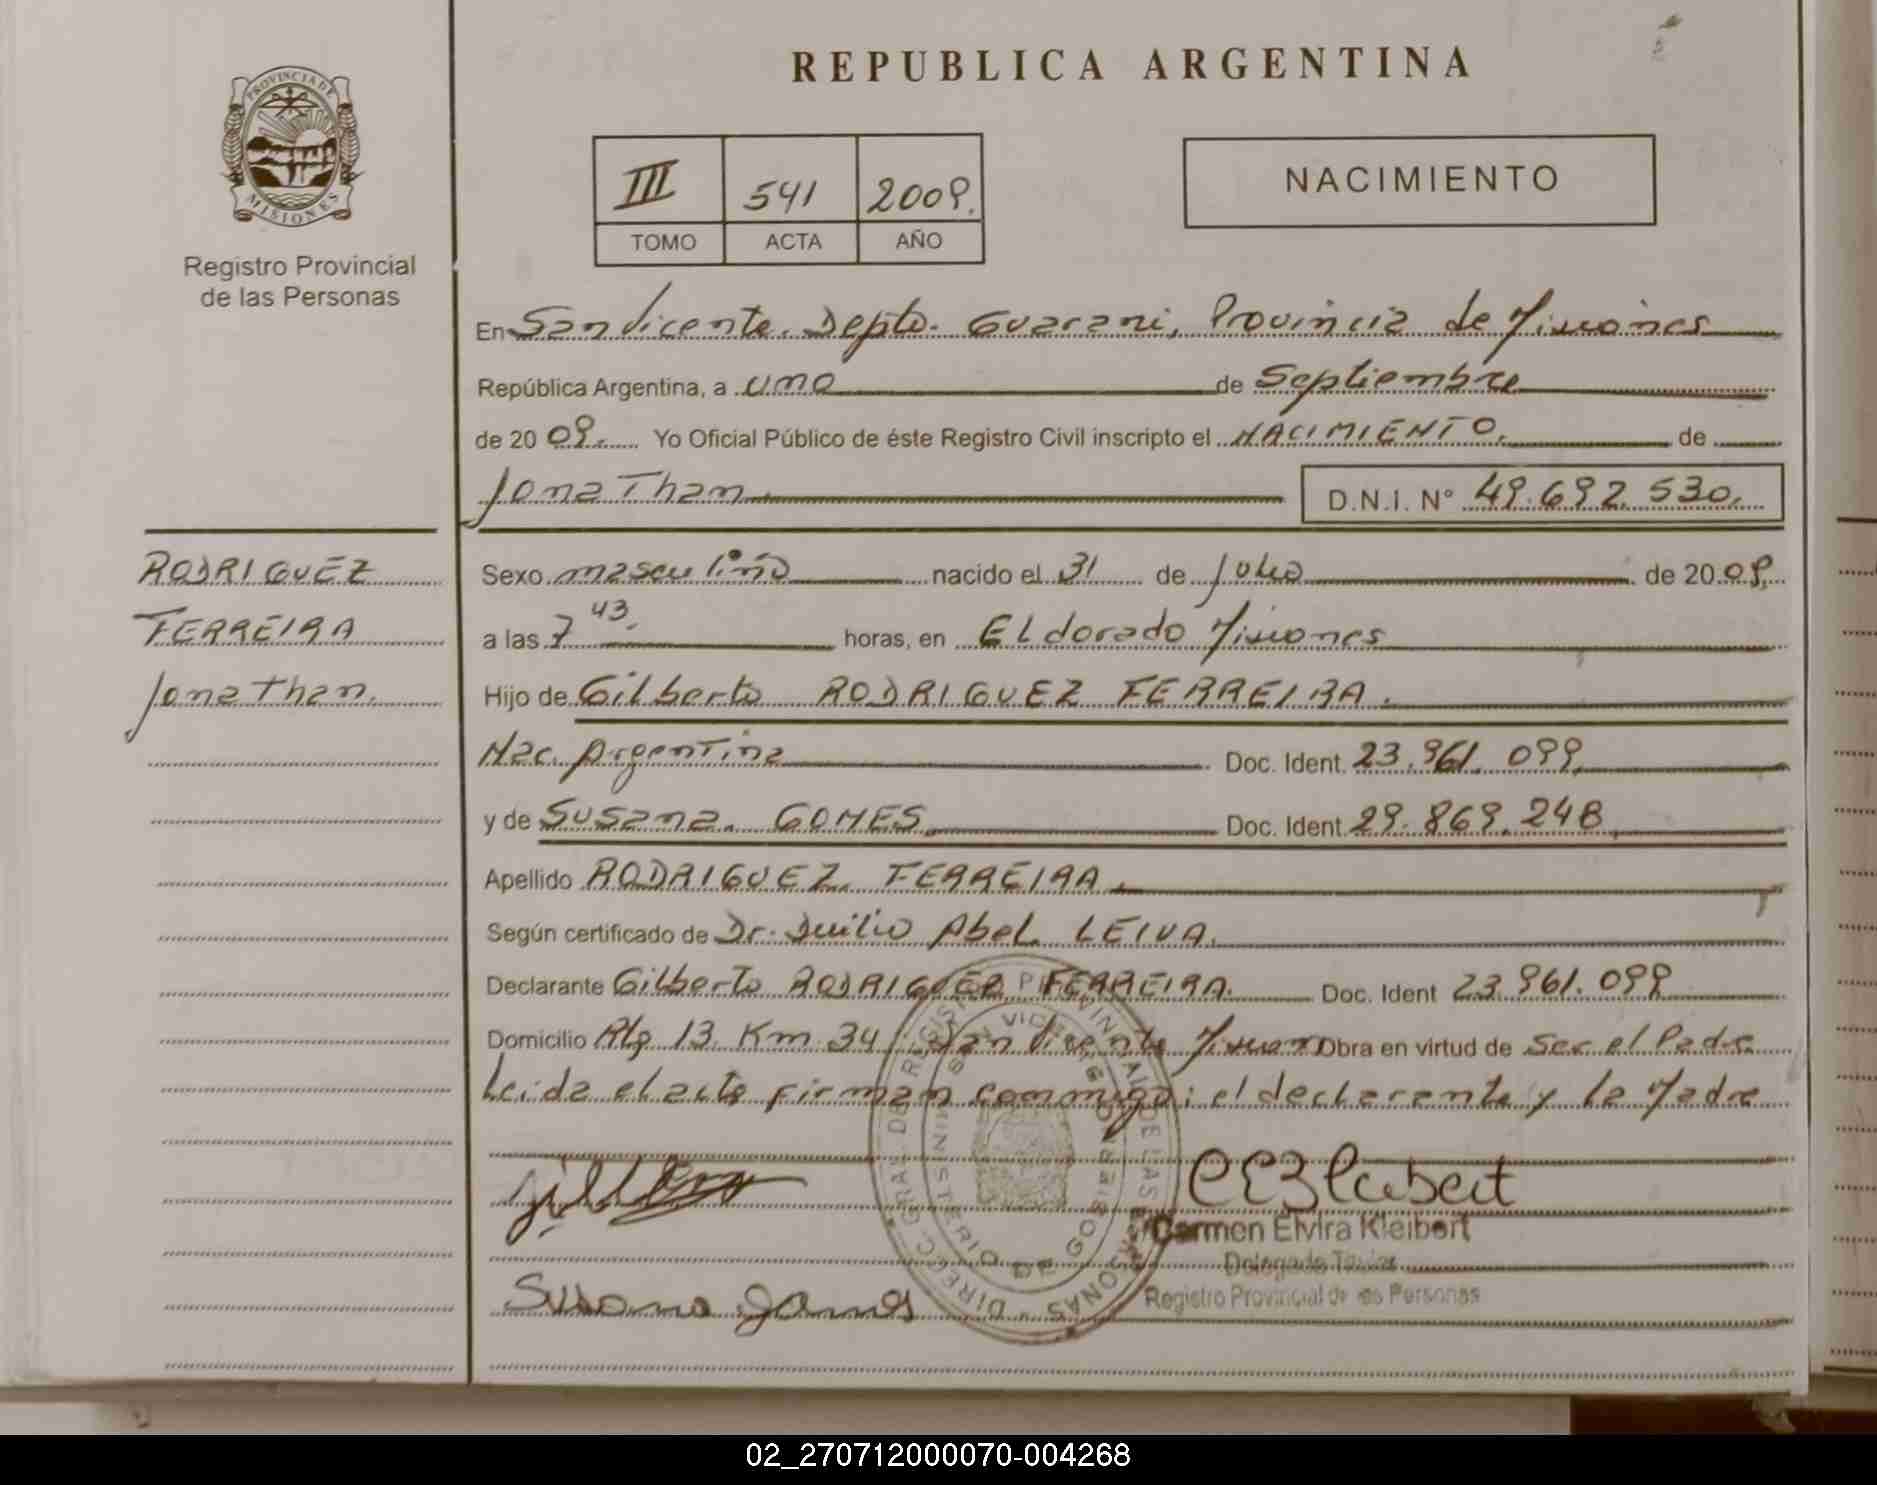 REPUBLICA ARGENTINA
PROVINCIA DE
MISIONES
Registro Provincial
de las Personas
III 541 2009.
TOMO ACTA AÑO
NACIMIENTO
En San Vicente. Depto. Guarani, Provincia de Misiones
República Argentina, a uno de Septiembre
de 20 09. Yo Oficial Público de éste Registro Civil inscripto el NACIMIENTO. de
Jonathan D.N.I. N° 49.692.530.
RODRIGUEZ
FERREIRA
Jonathan.
Sexo masculino nacido el 31 de Julio de 20 09.
a las 7 43. horas, en ELdorado Misiones
Hijo de Gilberto RODRIGUEZ FERREIRA.
Nac. Argentina Doc. Ident. 23.961.099.
y de Susana. GOMES. Doc. Ident. 29.869.248.
Apellido RODRIGUEZ FERREIRA.
Según certificado de Dr. Duilio Abel LEIVA.
Declarante Gilberto RODRIGUEZ FERREIRA. Doc. Ident 23.961.099
Domicilio Rta 13 Km 34 San Vicente Misiones Obra en virtud de Ser el Padre
Leida el acta firman conmigo: el declarante y la Madre
DIRECC. GRAL. DE REGISTRO PROVINCIAL DE LAS PERSONAS
MINISTERIO DE GOBIERNO
Carmen Elvira Kleibert
Delegada Titular
Registro Provincial de las Personas
Susana Gomes
02_270712000070-004268